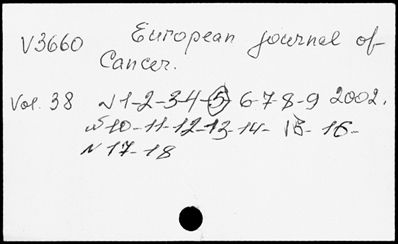 V3660 European Journal of
Cancer.
Vol. 38 N 1-2-3-4-5 6-7-8-9 2002.
N 10-11-12-13-14- 15- 16-
N 17-18